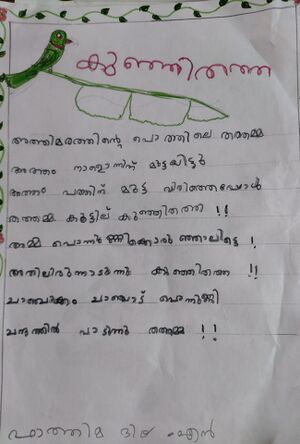 കുഞ്ഞിതത്ത
അത്തിമരത്തിന്റെ പൊത്തിലെ തത്തമ്മ
അത്തം നാളൊന്നിന് മുട്ടയിട്ടു
അത്തം പത്തിന് മുട്ട വിരിഞ്ഞപ്പോൾ
തത്തമ്മ കൂട്ടില് കുഞ്ഞിതത്ത !!
അമ്മ പൊന്നുണ്ണിക്കൊരു ഞ്ഞാലിട്ടെ !
അതിലിരുന്നാടുന്നു കുഞ്ഞിതത്ത !!
ചാഞ്ചക്കം ചാഞ്ചാട് പൊന്നുണ്ണി
പാടുന്നു തത്തമ്മ !!
ഫാത്തിമ എൻ